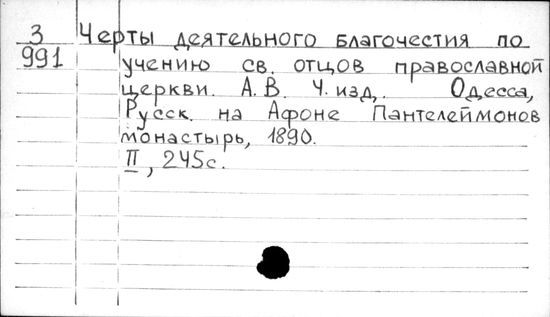 3
991
Черты деятельного благочестия по
учению св. отцов православной
церкви. А. В. Ч. изд. Одесса,
Русск. на Афоне Пантелеймонов
монастырь, 1890.
II, 245с.